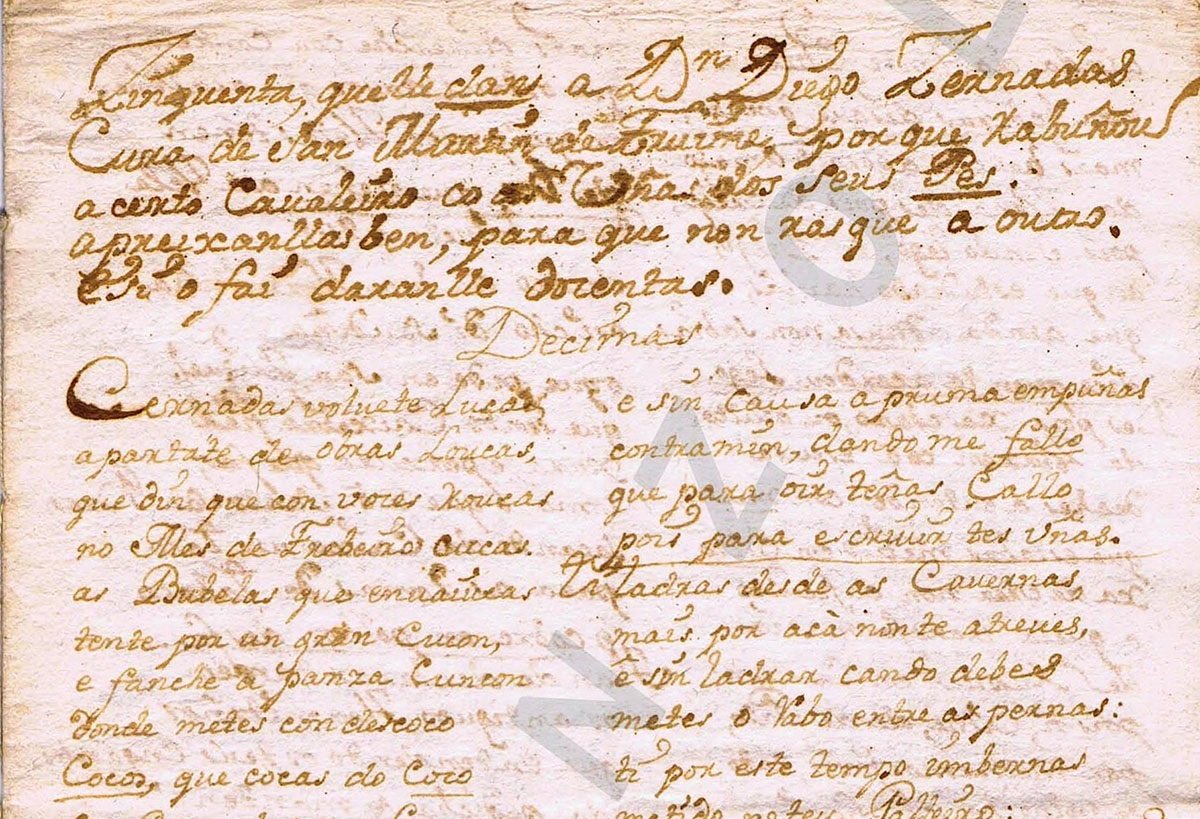 Zinquenta, que lle dan a Dn Diego Zernadas
Cura de San Martin de Fruime, por que rabuñou
a certo Cavaleiro co as Uñas dos seus Pes.
apreixanllas ben, para que non rasque a outro.
e si o fai daranlle docentas.
Decimas
Cernadas volvete Lucas
apartate de obras Loucas,
que din que con voces roucas
no Mes de Frebeiro cucas.
as Bubelas que envaucas
tente por un gran Cucon,
e fanche a panza Cuncon
donde metes con descoco
Cocos, que cocas do Coco
e sin causa a pruma empuñas
contra min, dando me fallo
que para oir teñas Callo
pois para escrivir tes uñas.
ladras desde as Cavernas,
mais por acà non te atreves,
e sin ladrar cando debes
metes o rabo entre as pernas:
ti por este tempo imbernas
metido no teu Palleiro:
N Z O